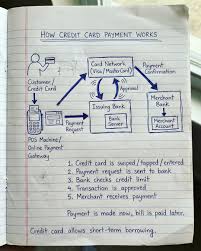 HOW CREDIT CARD PAYMENT WORKS
Customer/
Credit Card
Card Network
(Visa/MasterCard)
Payment
Confirmation
Approval
POS Machine/
Online Payment
Gateway
Payment
Request
Issuing Bank
Bank
Server
Merchant
Bank
Merchant
Account
1. Credit card is swiped/tapped/entered
2. Payment request is sent to bank
3. Bank checks credit limit
4. Transaction is approved
5. Merchant receives payment
Payment is made now, bill is paid later.
Credit card allows short-term borrowing.